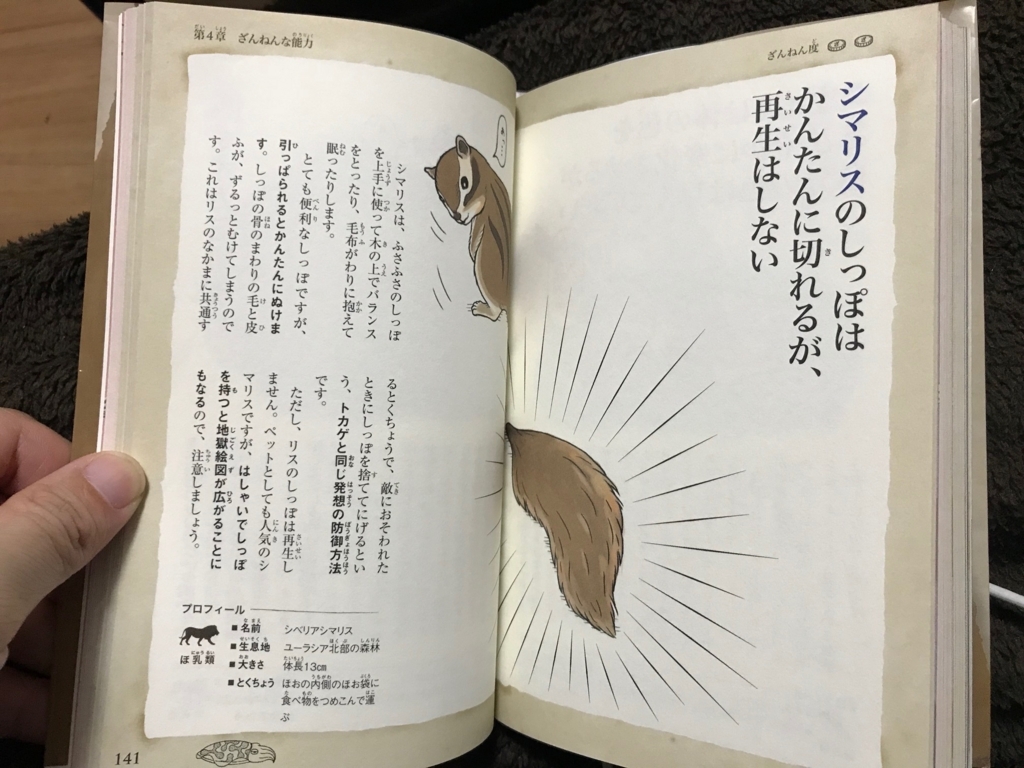 ざんねん度
シマリスのしっぽは
かんたんに切れるが、
再生はしない
第4章 ざんねんな能力
シマリスは、ふさふさのしっぽ
を上手に使って木の上でバランス
をとったり、毛布がわりに抱えて
眠ったりします。
とても便利なしっぽですが、
引っぱられるとかんたんにぬけま
す。しっぽの骨のまわりの毛と皮
ふが、ずるっとむけてしまうので
す。これはリスのなかまに共通す
るとくちょうで、敵におそわれた
ときにしっぽを捨ててにげるとい
う、トカゲと同じ発想の防御方法
です。
ただし、リスのしっぽは再生し
ません。ペットとしても人気のシ
マリスですが、はしゃいでしっぽ
を持つと地獄絵図が広がることに
もなるので、注意しましょう。
プロフィール
ほ乳類
■名前 シベリアシマリス
■生息地 ユーラシア北部の森林
■大きさ 体長13cm
■とくちょう ほおの内側のほお袋に
食べ物をつめこんで運
ぶ
141